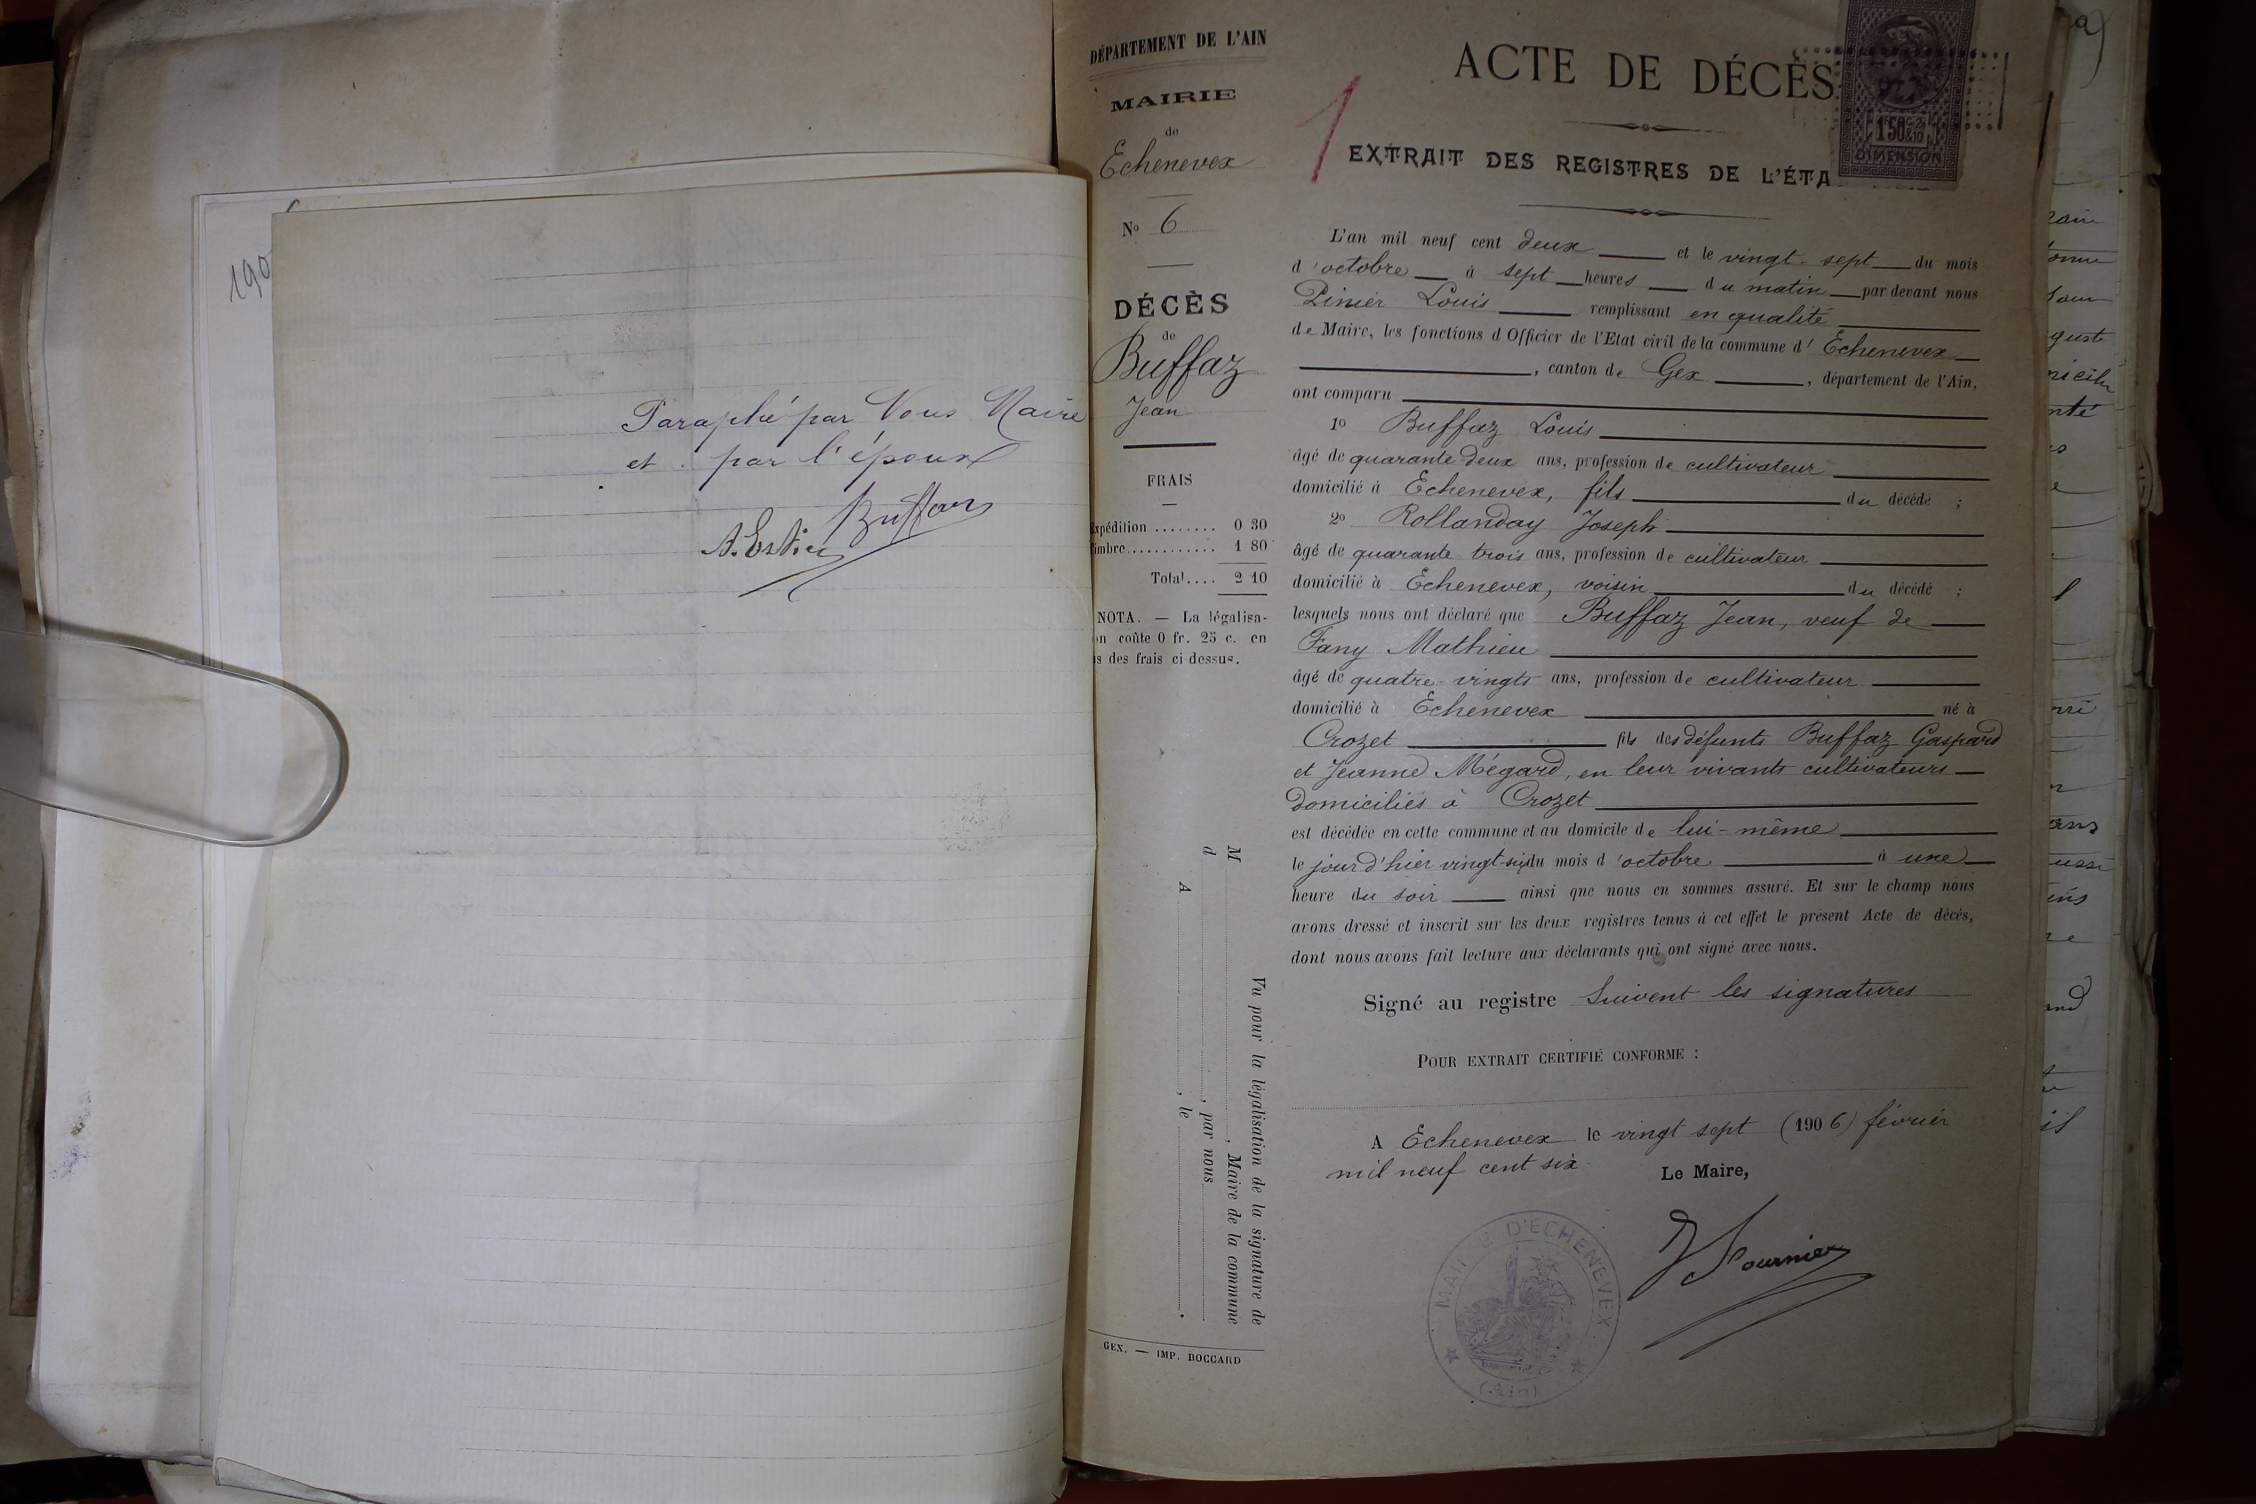 190
Paraphé par Nous Maire
et par l'époux
Buffaz
DÉPARTEMENT DE L'AIN
MAIRIE
de
Echenevex
No 6
DÉCÈS
de
Buffaz
Jean
FRAIS
Expédition ........ 0 30
Timbre............ 1 80
Total.... 2 10
NOTA. — La légalisa-
on coûte 0 fr. 25 c. en
us des frais ci-dessus.
Vu pour la légalisation de la signature de
M , Maire de la commune
d , par nous
A , le .
GEX. — IMP. BOCCARD
ACTE DE DÉCÈS
1
1F50c 2/10
DIMENSION
EXTRAIT DES REGISTRES DE L'ÉTA
L'an mil neuf cent deux et le vingt-sept du mois
d'octobre à sept heures du matin par devant nous
Pinier Louis remplissant en qualité
de Maire, les fonctions d'Officier de l'Etat civil de la commune d'Echenevex
, canton de Gex , département de l'Ain,
ont comparu
1o Buffaz Louis
âgé de quarante-deux ans, profession de cultivateur
domicilié à Echenevex, fils du décédé ;
2o Rollanday Joseph
âgé de quarante trois ans, profession de cultivateur
domicilié à Echenevex, voisin du décédé ;
lesquels nous ont déclaré que Buffaz Jean, veuf de
Fany Mathieu
âgé de quatre-vingts ans, profession de cultivateur
domicilié à Echenevex né à
Crozet fils des défunts Buffaz Gaspard
et Jeanne Mégard, en leur vivants cultivateurs
domiciliés à Crozet
est décédée en cette commune et au domicile de lui-même
le jour d'hier vingt-six du mois d'octobre à une
heure du soir ainsi que nous en sommes assuré. Et sur le champ nous
avons dressé et inscrit sur les deux registres tenus à cet effet le présent Acte de décès,
dont nous avons fait lecture aux déclarants qui ont signé avec nous.
Signé au registre Suivent les signatures
POUR EXTRAIT CERTIFIÉ CONFORME :
A Echenevex le vingt sept (1906) février
mil neuf cent six
Le Maire,
Fournier
MAIRIE D'ECHENEVEX
(Ain)